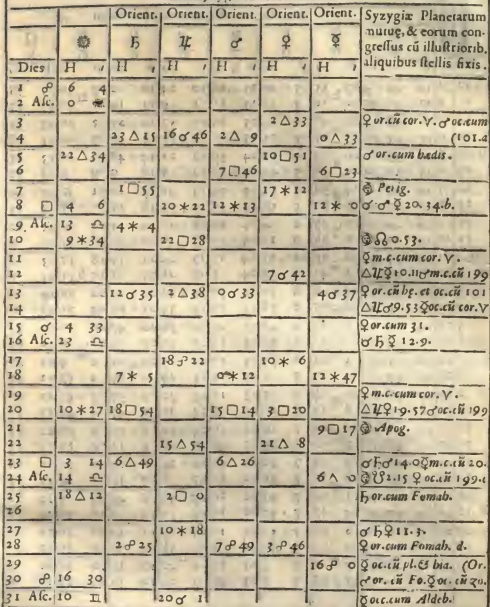 Orient. Orient. Orient. Orient. Orient. Syzygiæ Planetarum
mutuę, & eorum con-
☉ ♄ ♃ ♂ ♀ ☿ gressus cū illustriorib.
aliquibus stellis fixis.
Dies H ′ H ′ H ′ H ′ H ′ H ′
1 ☍ 6 4
2 Asc. 0
3 2 △ 33 ♀ or.cū cor. ♈. ♂ oc.cum
4 23 △ 15 16 ☌ 46 2 △ 9 0 △ 33 (101.a
5 22 △ 34 10 □ 51 ♂ or.cum hædis.
6 7 □ 46 6 □ 23
7 1 □ 55 17 ⚹ 12 Perig.
8 □ 4 6 20 ⚹ 22 12 ⚹ 13 12 ⚹ 0 ☌ ♂ ☿ 20.34.b.
9 Asc. 13 ♎ 4 ⚹ 4
10 9 ⚹ 34 22 □ 28 ☊ 0.53.
11 ☿ m.c.cum cor. ♈.
12 7 ☌ 42 △ ♃ ☿ 10.11 ♂ m.c.cū 199
13 12 ☌ 35 2 △ 38 0 ☌ 33 4 ☌ 37 ♀ or.cū hę. et oc.cū 101
14 △ ♃ ♂ 9.53 ☿ oc.cū cor. ♈
15 ☌ 4 33 ♀ or.cum 31.
16 Asc. 23 ♎ ☌ ♄ ☿ 12.9.
17 18 ☍ 22 10 ⚹ 6
18 7 ⚹ 5 0 ⚹ 12 12 ⚹ 47
19 ♀ m.c.cum cor. ♈.
20 10 ⚹ 27 18 □ 54 15 □ 14 3 □ 20 △ ♃ ♀ 19.57 ♂ oc.cū 199
21 9 □ 17 Apog.
22 15 △ 54 21 △ 8
23 □ 3 14 6 △ 49 6 △ 26 ☌ ♄ ♂ 14.0 ☿ m.c.cū 20.
24 Asc. 14 ♎ 6 △ 0 ☋ 2.15 ♀ oc.cū 199.
25 18 △ 12 2 □ 0 ♄ or.cum Fomah.
26
27 10 ⚹ 18 ☌ ♄ ♀ 11.3.
28 2 ☍ 25 7 ☍ 49 3 ☍ 46 ♀ or.cum Fomah. d.
29 16 ☍ 0 ☿ oc.cū pl.& hia. (Or.
30 ☍ 16 30 ♂ or. cū Fo. ☿ oc. cū 20.
31 Asc. 10 ♊ 20 ☌ 1 ☿ occ.cum Aldeb.